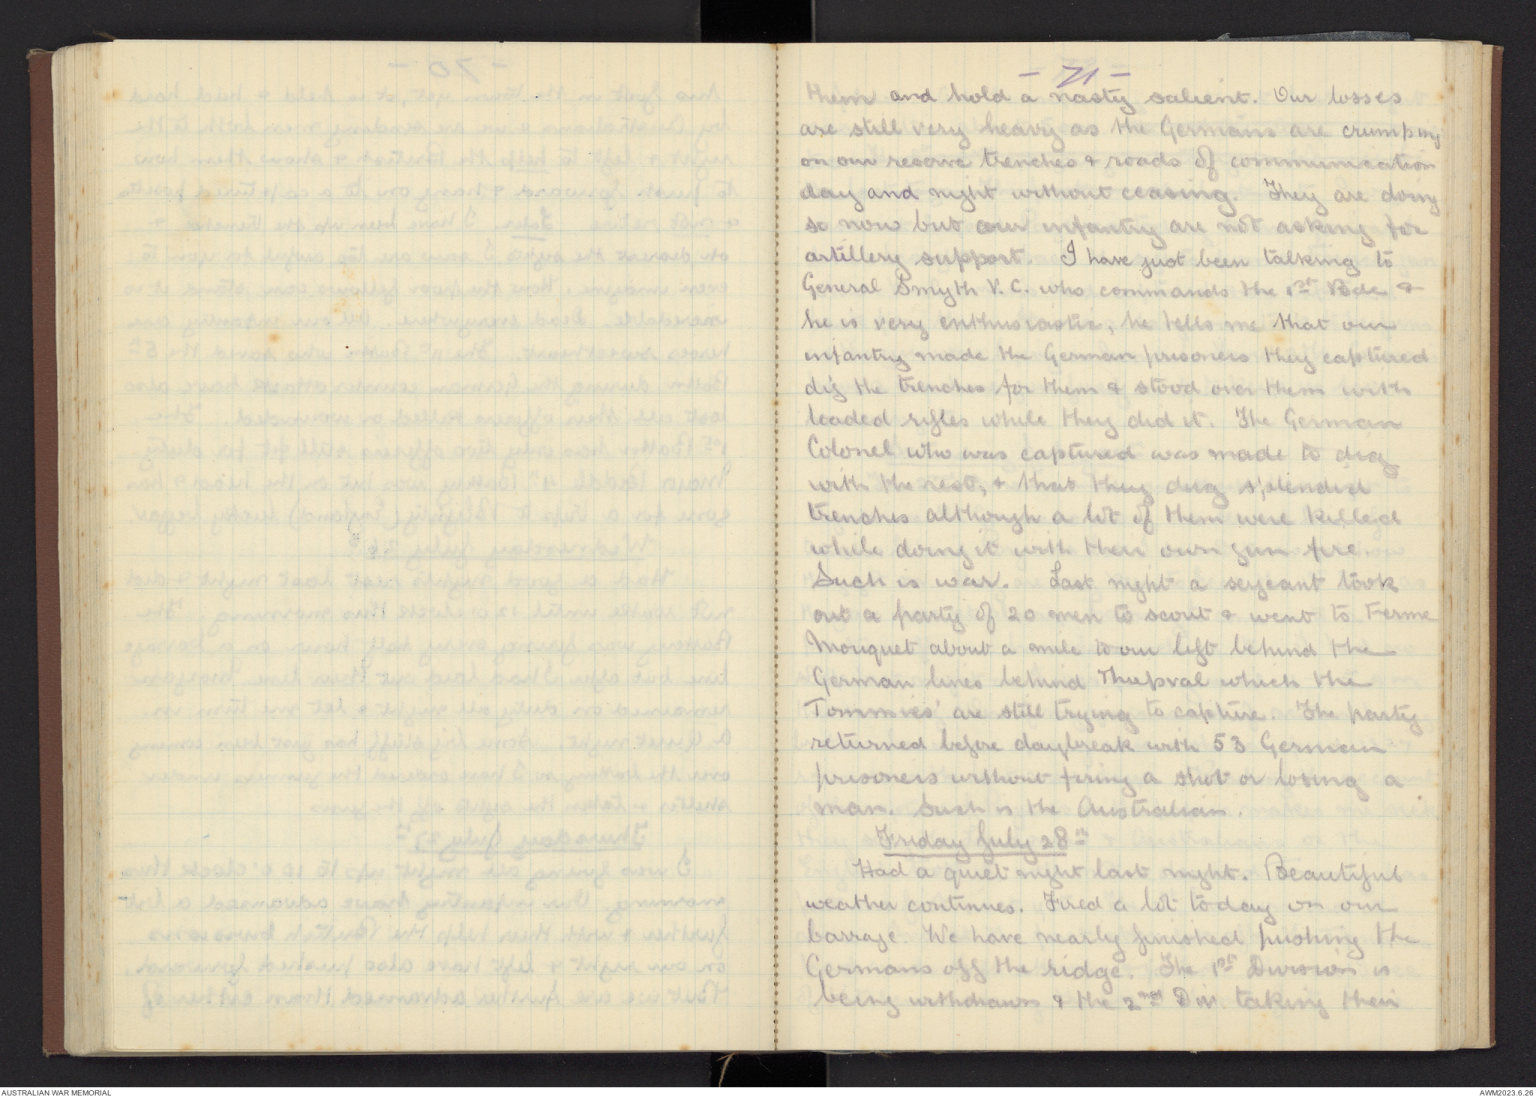 - 71 -
them and hold a nasty salient. Our losses
are still very heavy as the Germans are crumping
on our reserve trenches & roads of communication
day and night without ceasing. They are doing
so now but our infantry are not asking for
artillery support. I have just been talking to
General Smyth V.C. who commands the 1st Bde &
he is very enthusiastic, he tells me that our
infantry made the German prisoners they captured
dig the trenches for them & stood over them with
loaded rifles while they did it. The German
Colonel who was captured was made to dig
with the rest, & that they dug splendid
trenches although a lot of them were killed
while doing it with their own gun fire.
Such is war. Last night a sergeant took
out a party of 20 men to scout & went to Ferme
Mouquet about a mile to our left behind the
German lines behind Thiepval which the
Tommies' are still trying to capture. The party
returned before daybreak with 53 German
prisoners without firing a shot or losing a
man. Such is the Australian.
Friday July 28th
Had a quiet night last night. Beautiful
weather continues. Fired a lot today on our
barrage. We have nearly finished pushing the
Germans off the ridge. The 1st Division is
being withdrawn & the 2nd Div. taking their
AUSTRALIAN WAR MEMORIAL
AWM2023.6.26